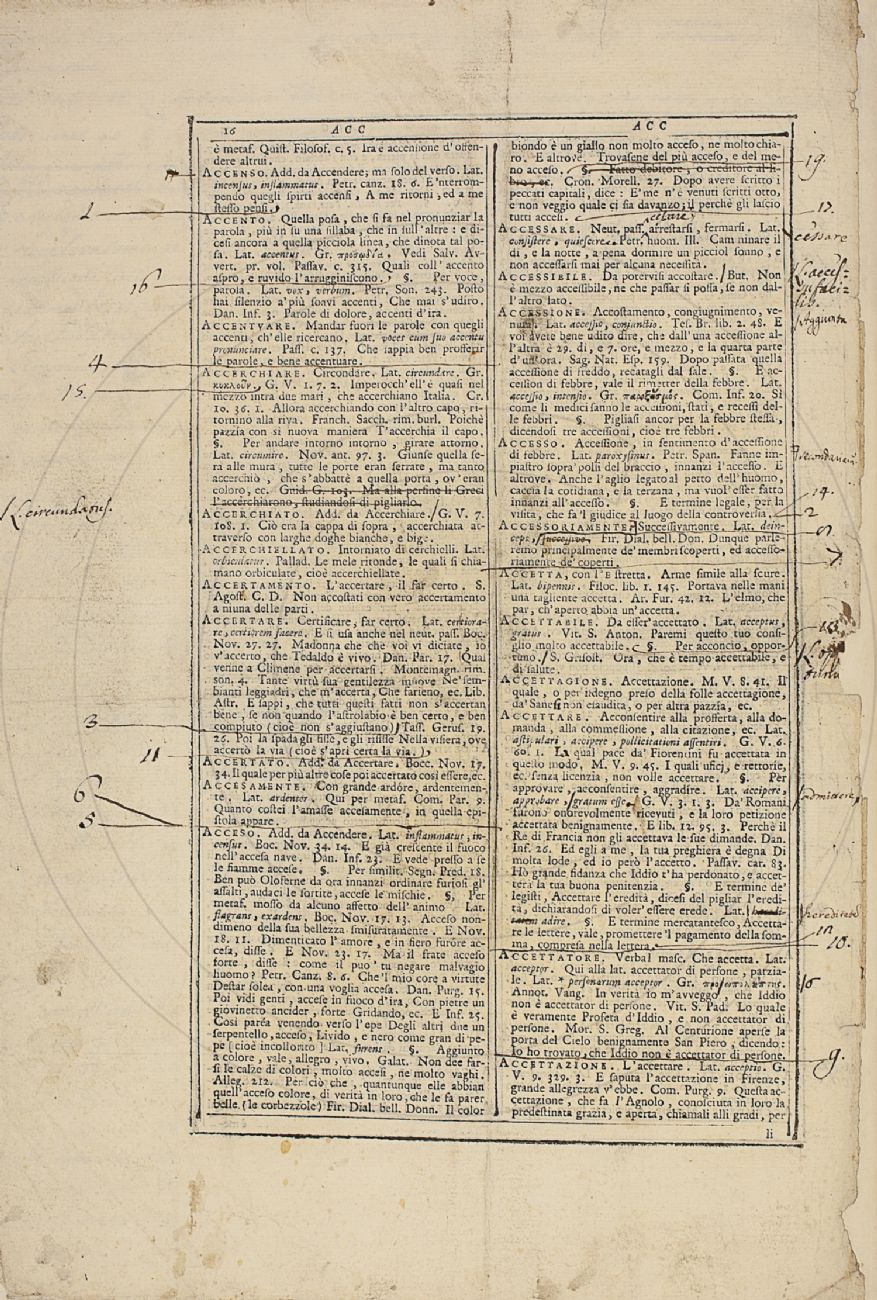 16 ACC ACC
è metaf. Quist. Filosof. c. 5. Ira è accensione d'offen-
dere altrui.
ACCENSO. Add. da Accendere; ma solo del verso. Lat.
incensus, inflammatus. Petr. canz. 18. 6. E 'nterrom-
pendo quegli spirti accensi, A me ritorni, ed a me
stesso pensi.
ACCENTO. Quella posa, che si fa nel pronunziar la
parola, più in su una sillaba, che in sull'altre: e di-
cesi ancora a quella picciola linea, che dinota tal po-
sa. Lat. accentus. Gr. προσῳδία. Vedi Salv. Av-
vert. pr. vol. Passav. c. 315. Quali coll'accento
aspro, e ruvido l'arrugginiscono. §. Per voce,
parola. Lat. vox, verbum. Petr. Son. 243. Posto
hai silenzio a'più soavi accenti, Che mai s'udiro.
Dan. Inf. 3. Parole di dolore, accenti d'ira.
ACCENTVARE. Mandar fuori le parole con quegli
accenti, ch'elle ricercano. Lat. voces cum suo accentu
pronunciare. Pass. c. 137. Che sappia ben profferir
le parole, e bene accentuare.
ACCERCHIARE. Circondare. Lat. circumdare. Gr.
κυκλοῦν. G. V. 1. 7. 2. Imperocch'ell'è quasi nel
mezzo intra due mari, che accerchiano Italia. Cr.
10. 36. 1. Allora accerchiando con l'altro capo, ri-
tornino alla riva. Franch. Sacch. rim. burl. Poichè
pazzia con sì nuova maniera T'accerchia il capo.
§. Per andare intorno intorno, girare attorno.
Lat. circumire. Nov. ant. 97. 3. Giunse quella se-
ra alle mura, tutte le porte eran serrate, ma tanto
accerchiò, che s'abbattè a quella porta, ov'eran
coloro, ec. Guid. G. 103. Ma alla perfine li Greci
l'accerchiarono, studiandosi di pigliarlo.
ACCERCHIATO. Add. da Accerchiare. G. V. 7.
108. 1. Ciò era la cappa di sopra, accerchiata at-
traverso con larghe doghe bianche, e bige.
ACCERCHIELLATO. Intorniato di cerchielli. Lat.
orbiculatus. Pallad. Le mele ritonde, le quali si chia-
mano orbiculate, cioè accerchiellate.
ACCERTAMENTO. L'accertare, il far certo. S.
Agost. C. D. Non accostati con vero accertamento
a niuna delle parti.
ACCERTARE. Certificare, far certo. Lat. certiora-
re, certiorem facere. E si usa anche nel neut. pass. Boc.
Nov. 27. 27. Madonna che che voi vi diciate, io
v'accerto, che Tedaldo è vivo. Dan. Par. 17. Qual
venne a Climene per accertarsi, Montemagn. rim.
son. 4. Tante virtù sua gentilezza muove Ne' sem-
bianti leggiadri, che m'accerta, Che farieno, ec. Lib.
Astr. E sappi, che tutti questi fatti non s'accertan
bene, se non quando l'astrolabio è ben certo, e ben
compiuto (cioè non s'aggiustano) Tass. Gerus. 19.
26. Poi la spada gli fisse, e gli rifisse Nella visiera, ove
accertò la via (cioè s'aprì certa la via.)
ACCERTATO. Add. da Accertare. Bocc. Nov. 17.
34. Il quale per più altre cose poi accertato così essere, ec.
ACCESAMENTE. Con grande ardóre, ardentemen-
te. Lat. ardenter. Qui per metaf. Com. Par. 9.
Quanto costei l'amasse accesamente, in quella epi-
stola appare.
ACCESO. Add. da Accendere. Lat. inflammatus, in-
census. Boc. Nov. 34. 14. E già crescente il fuoco
nell'accesa nave. Dan. Inf. 23. E vede presso a se
le fiamme accese. §. Per similit. Segn. Pred. 18.
Ben può Oloferne da ora innanzi ordinare furiosi gl'
assalti, audaci le sortite, accese le mischie. §. Per
metaf. mosso da alcuno affetto dell'animo Lat.
flagrans, exardens. Boc. Nov. 17. 13. Acceso non-
dimeno della sua bellezza smisuratamente. E Nov.
18. 11. Dimenticato l'amore, e in fiero furóre ac-
cesa, disse. E Nov. 23. 17. Ma il frate acceso
forte, disse: come il puo' tu negare malvagio
huomo? Petr. Canz. 8. 6. Che 'l mio core a virtute
Destar solea, con una voglia accesa. Dan. Purg. 15.
Poi vidi genti, accese in fuoco d'ira, Con pietre un
giovinetto ancider, forte Gridando, ec. E Inf. 25.
Così parèa venendo verso l'epe Degli altri due un
serpentello, acceso, Livido, e nero come gran di pe-
pe [cioè incollorito] Lat. furens. §. Aggiunto
a colore, vale, allegro, vivo. Galat. Non dee far-
si le calze di colori, molto accesi, ne molto vaghi.
Alleg. 212. Per ciò che, quantunque elle abbian
quell'acceso colore, di verità in loro, che le fa parer
belle. (le corbezzole) Fir. Dial. bell. Donn. Il color
biondo è un giallo non molto acceso, ne molto chia-
ro. E altrove. Trovasene del più acceso, e del me-
no acceso. §. Fatto debitore, o creditore al li-
bro, ec. Cron. Morell. 27. Dopo avere scritto i
peccati capitali, dice: E'me n'è venuti scritti otto,
e non veggio quale ci sia davanzo; il perchè gli lascio
tutti accesi.
ACCESSARE. Neut. pass. arrestarsi, fermarsi. Lat.
consistere, quiescere. Petr. huom. Ill. Cam ninare il
dì, e la notte, a pena dormire un picciol sonno, e
non accessarsi mai per alcuna necessità.
ACCESSIBILE. Da potervisi accostare. But. Non
è mezzo accessibile, ne che passar si possa, se non dal-
l'altro lato.
ACCESSIONE. Accostamento, congiugnimento, ve-
nuta. Lat. accessio, coniunctio. Tes. Br. lib. 2. 48. E
voi avete bene udito dire, che dall'una accessione al-
l'altra è 29. dì, e 7. ore, e mezzo, e la quarta parte
d'un'ora. Sag. Nat. Esp. 159. Dopo passata quella
accessione di freddo, recatagli dal sale. §. E ac-
cession di febbre, vale il rimetter della febbre. Lat.
accessio, intensio. Gr. παροξυσμός. Com. Inf. 20. Sì
come li medici fanno le accessioni, stati, e recessi del-
le febbri. §. Pigliasi ancor per la febbre stessa,
dicendosi tre accessioni, cioè tre febbri.
ACCESSO. Accessione, in sentimento d'accessione
di febbre. Lat. paroxysmus. Petr. Span. Fanne im-
piastro sopra' polsi del braccio, innanzi l'accesso. E
altrove. Anche l'aglio legato al petto dell'huomo,
caccia la cotidiana, e la terzana, ma vuol'esser fatto
innanzi all'accesso. §. E termine legale, per la
visita, che fa 'l giudice al luogo della controversia.
ACCESSORIAMENTE. Successivamente. Lat. dein-
ceps, successive. Fir. Dial. bell. Don. Dunque parle-
remo principalmente de'membri scoperti, ed accesso-
riamente de' coperti.
ACCETTA, con l'E stretta. Arme simile alla scure.
Lat. bipennis. Filoc. lib. 1. 145. Portava nelle mani
una tagliente accetta. Ar. Fur. 42. 12. L'elmo, che
par, ch'aperto abbia un'accetta.
ACCETTABILE. Da esser'accettato. Lat. acceptus,
gratus. Vit. S. Anton. Paremi questo tuo consi-
glio molto accettabile. §. Per acconcio, oppor-
tuno, S. Grisost. Ora, che è tempo accettabile, e
di salute.
ACCETTAGIONE. Accettazione. M. V. 8. 41. Il
quale, o per isdegno preso della folle accettagione,
da' Sanesi non esaudita, o per altra pazzia, ec.
ACCETTARE. Acconsentire alla profferta, alla do-
manda, alla commessione, alla citazione, ec. Lat.
astipulari, accipere, pollicitationi assentiri. G. V. 6.
60. 1. La qual pace da' Fiorentini fu accettata in
questo modo, M. V. 9. 45. I quali uficj, e rettorie,
ec. senza licenzia, non volle accettare. §. Per
approvare, acconsentire, aggradire. Lat. accipere,
approbare, gratum esse. G. V. 3. 1. 3. Da' Romani
furono onorevolmente ricevuti, e la loro petizione
accettata benignamente. E lib. 12. 95. 3. Perchè il
Re di Francia non gli accettava le sue dimande. Dan.
Inf. 26. Ed egli a me, la tua preghiera è degna Di
molta lode, ed io però l'accetto. Passav. car. 83.
Hò grande fidanza che Iddio t'ha perdonato, e accet-
terà la tua buona penitenzia. §. E termine de'
legisti, Accettare l'eredità, dicesi del pigliar l'eredi-
tà, dichiarandosi di voler'essere erede. Lat. heredi-
tatem adire. §. E termine mercantesco, Accetta-
re le lettere, vale, promettere 'l pagamento della som-
ma, compresa nella lettera.
ACCETTATORE. Verbal masc. Che accetta. Lat.
acceptor. Qui alla lat. accettator di persone, parzia-
le. Lat. personarum acceptor. Gr. προσωπολήπτης.
Annot. Vang. In verità io m'avveggo, che Iddio
non è accettator di persone. Vit. S. Pad. Lo quale
è veramente Profeta d'Iddio, e non accettator di
persone. Mor. S. Greg. Al Centurione aperse la
porta del Cielo benignamente San Piero, dicendo:
Io ho trovato, che Iddio non è accettator di persone.
ACCETTAZIONE. L'accettare. Lat. acceptio. G.
V. 9. 329. 3. E saputa l'accettazione in Firenze,
grande allegrezza v'ebbe. Com. Purg. 9. Questa ac-
cettazione, che fa l'Agnolo, conosciuta in loro la
predestinata grazia, e aperta, chiamali alli gradi, per
li
16
4
15.
3
11
6
5
19.
cessare
Aggiunta
14.
2
10.
9.